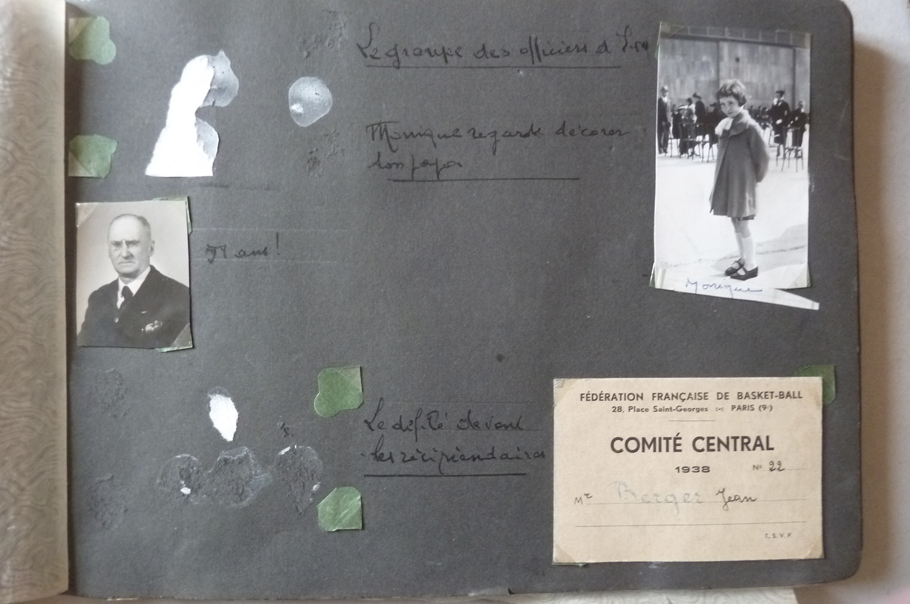 Le groupe des officiers d'
Monique regarde décorer
son papa
Monique
ans !
Le défilé devant
les récipiendaires
FÉDÉRATION FRANÇAISE DE BASKET-BALL
28, Place Saint-Georges PARIS (9e)
COMITÉ CENTRAL
1938 No 22
Mr Berger Jean
T.S.V.P.